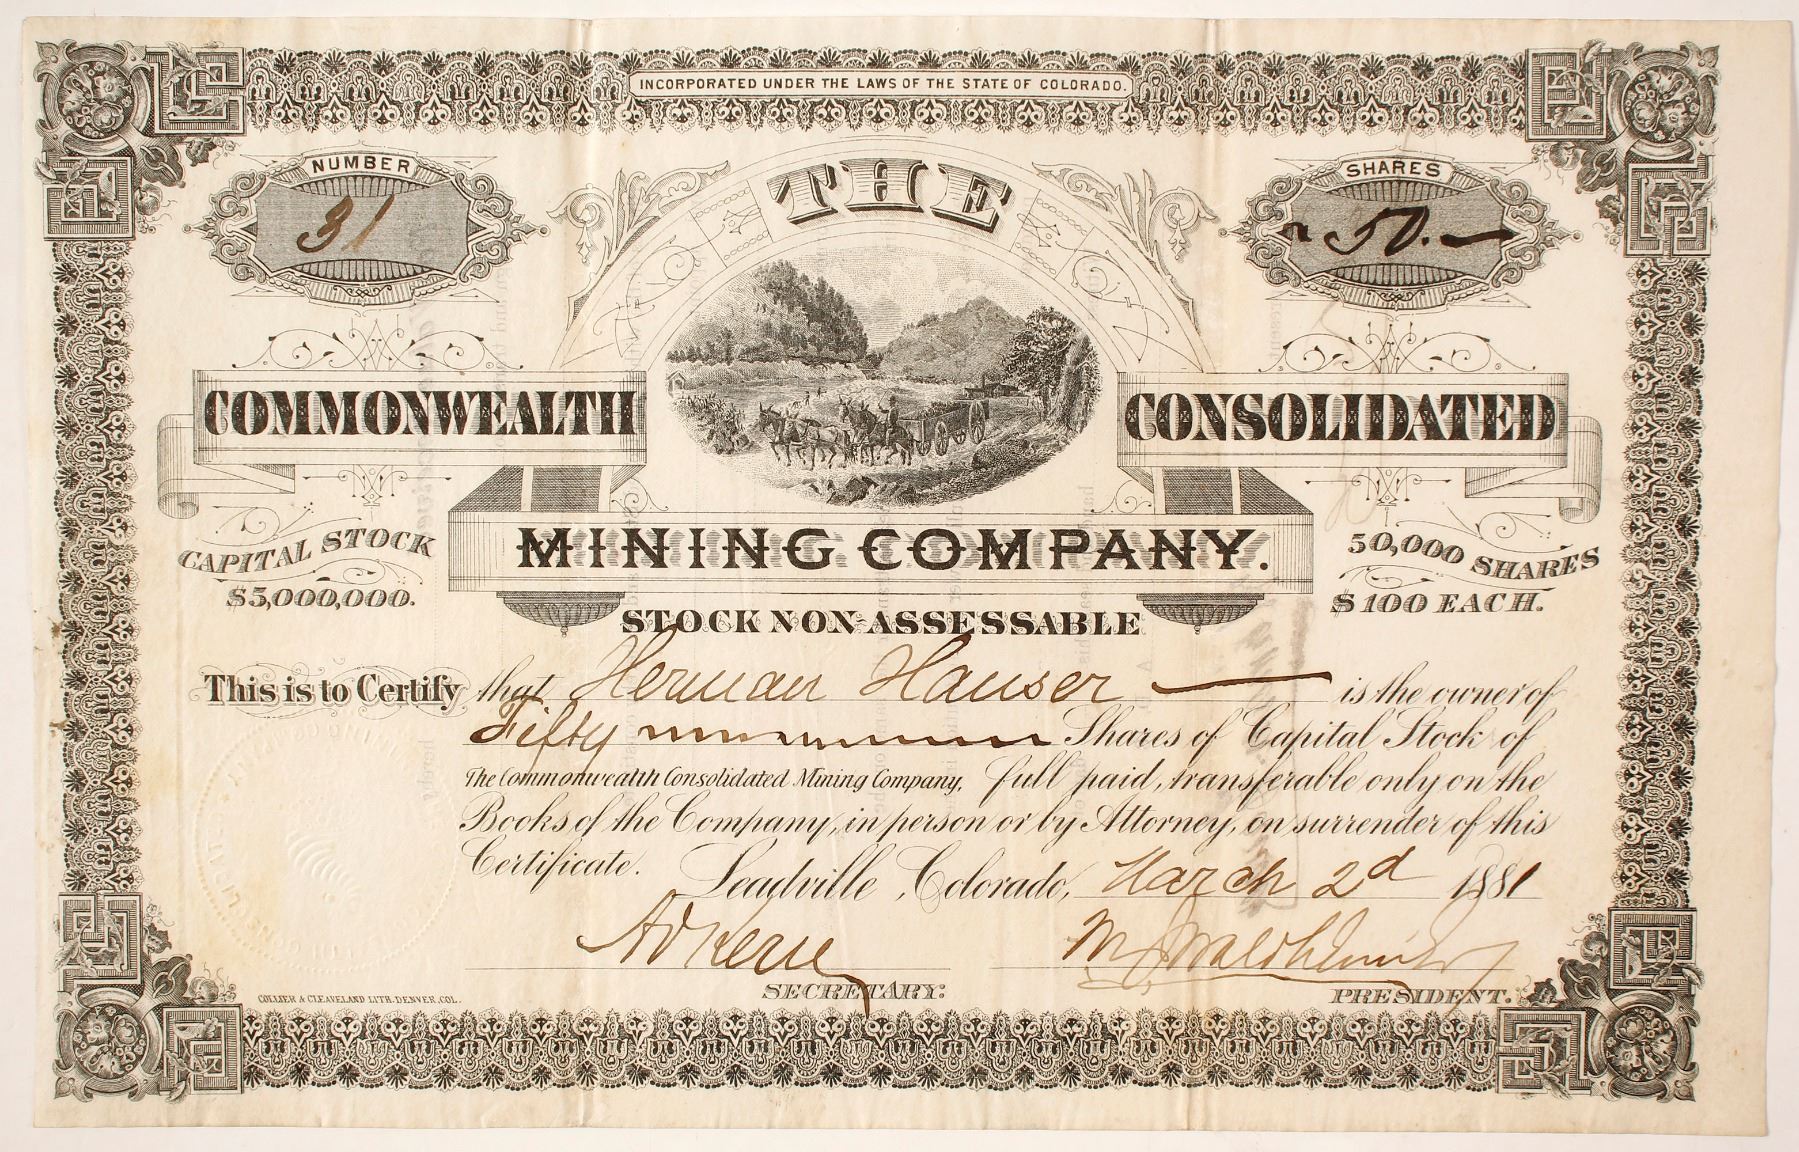 INCORPORATED UNDER THE LAWS OF THE STATE OF COLORADO.
NUMBER
31
THE
SHARES
50.
COMMONWEALTH
CONSOLIDATED
MINING COMPANY.
CAPITAL STOCK
$5,000,000.
50,000 SHARES
$100 EACH.
STOCK NON-ASSESSABLE
This is to Certify that Herman Hauser is the owner of
Fifty Shares of Capital Stock of
The Commonwealth Consolidated Mining Company, full paid, transferable only on the
Books of the Company, in person or by Attorney, on surrender of this
Certificate. Leadville, Colorado, March 2d 1881
SECRETARY.
PRESIDENT.
COLLIER & CLEAVELAND LITH. DENVER, COL.